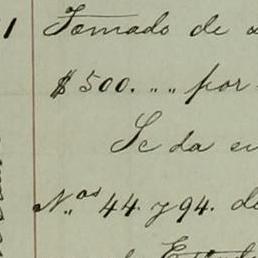 1 Tomado de
$500. „ „ por
Se da en
N.os 44. y 94. de
Estado